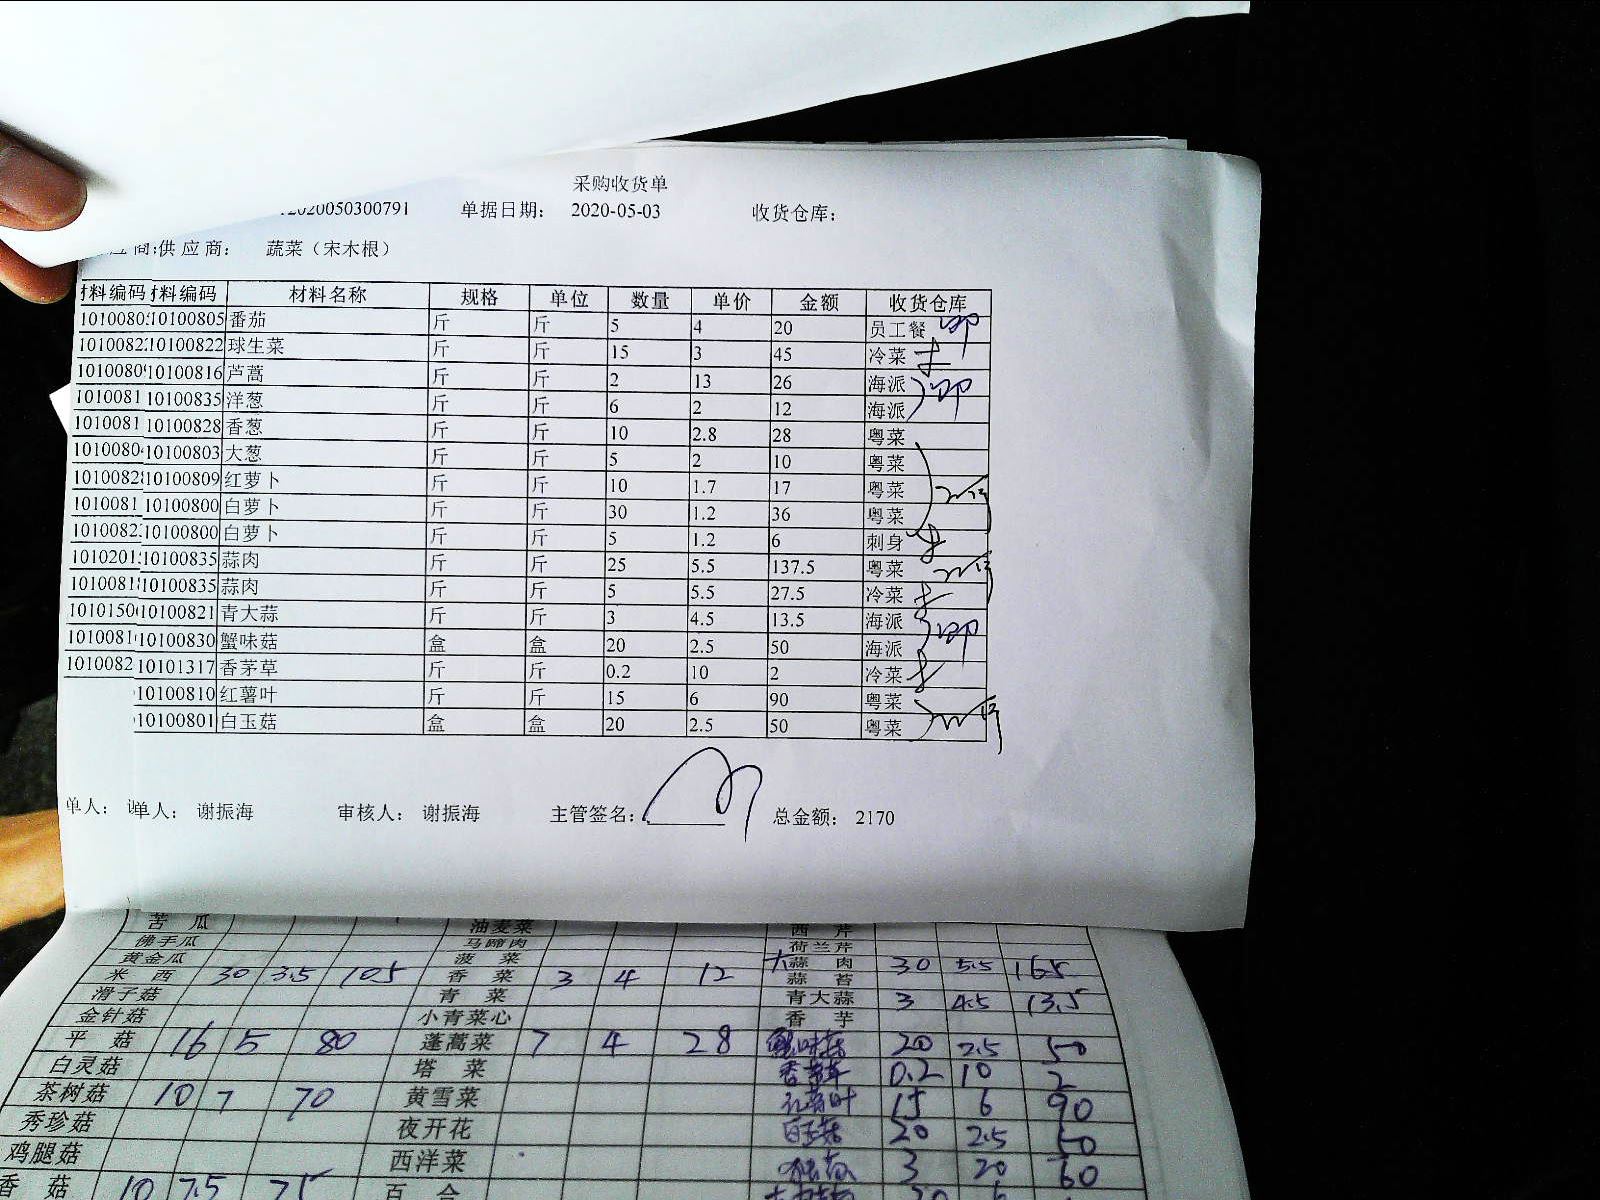 采购收货单
12020050300791 单据日期： 2020-05-03 收货仓库：
应商:供应商： 蔬菜（宋木根）
材料编码 材料编码 材料名称 规格 单位 数量 单价 金额 收货仓库
1010080 10100805 番茄 斤 斤 5 4 20 员工餐
1010082 10100822 球生菜 斤 斤 15 3 45 冷菜
1010080 10100816 芦蒿 斤 斤 2 13 26 海派
1010081 10100835 洋葱 斤 斤 6 2 12 海派
1010081 10100828 香葱 斤 斤 10 2.8 28 粤菜
1010080 10100803 大葱 斤 斤 5 2 10 粤菜
1010082 10100809 红萝卜 斤 斤 10 1.7 17 粤菜
1010081 10100800 白萝卜 斤 斤 30 1.2 36 粤菜
1010082 10100800 白萝卜 斤 斤 5 1.2 6 刺身
1010201 10100835 蒜肉 斤 斤 25 5.5 137.5 粤菜
1010081 10100835 蒜肉 斤 斤 5 5.5 27.5 冷菜
1010150 10100821 青大蒜 斤 斤 3 4.5 13.5 海派
1010081 10100830 蟹味菇 盒 盒 20 2.5 50 海派
1010082 10101317 香茅草 斤 斤 0.2 10 2 冷菜
10100810 红薯叶 斤 斤 15 6 90 粤菜
10100801 白玉菇 盒 盒 20 2.5 50 粤菜
单人： 单人： 谢振海 审核人： 谢振海 主管签名： 总金额： 2170
苦瓜 油麦菜 西芹
佛手瓜 马蹄肉 荷兰芹
黄金瓜 菠菜 大蒜肉 30 5.5 165
米西 30 3.5 105 香菜 3 4 12 蒜苔
滑子菇 青菜 青大蒜 3 4.5 13.5
金针菇 小青菜心 香芋
平菇 16 5 80 蓬蒿菜 7 4 28 蟹味菇 20 2.5 50
白灵菇 塔菜 香茅草 0.2 10 2
茶树菇 10 7 70 黄雪菜 红薯叶 15 6 90
秀珍菇 夜开花 白玉菇 20 2.5 50
鸡腿菇 西洋菜 3 20 60
香菇 10 7.5 75 百合